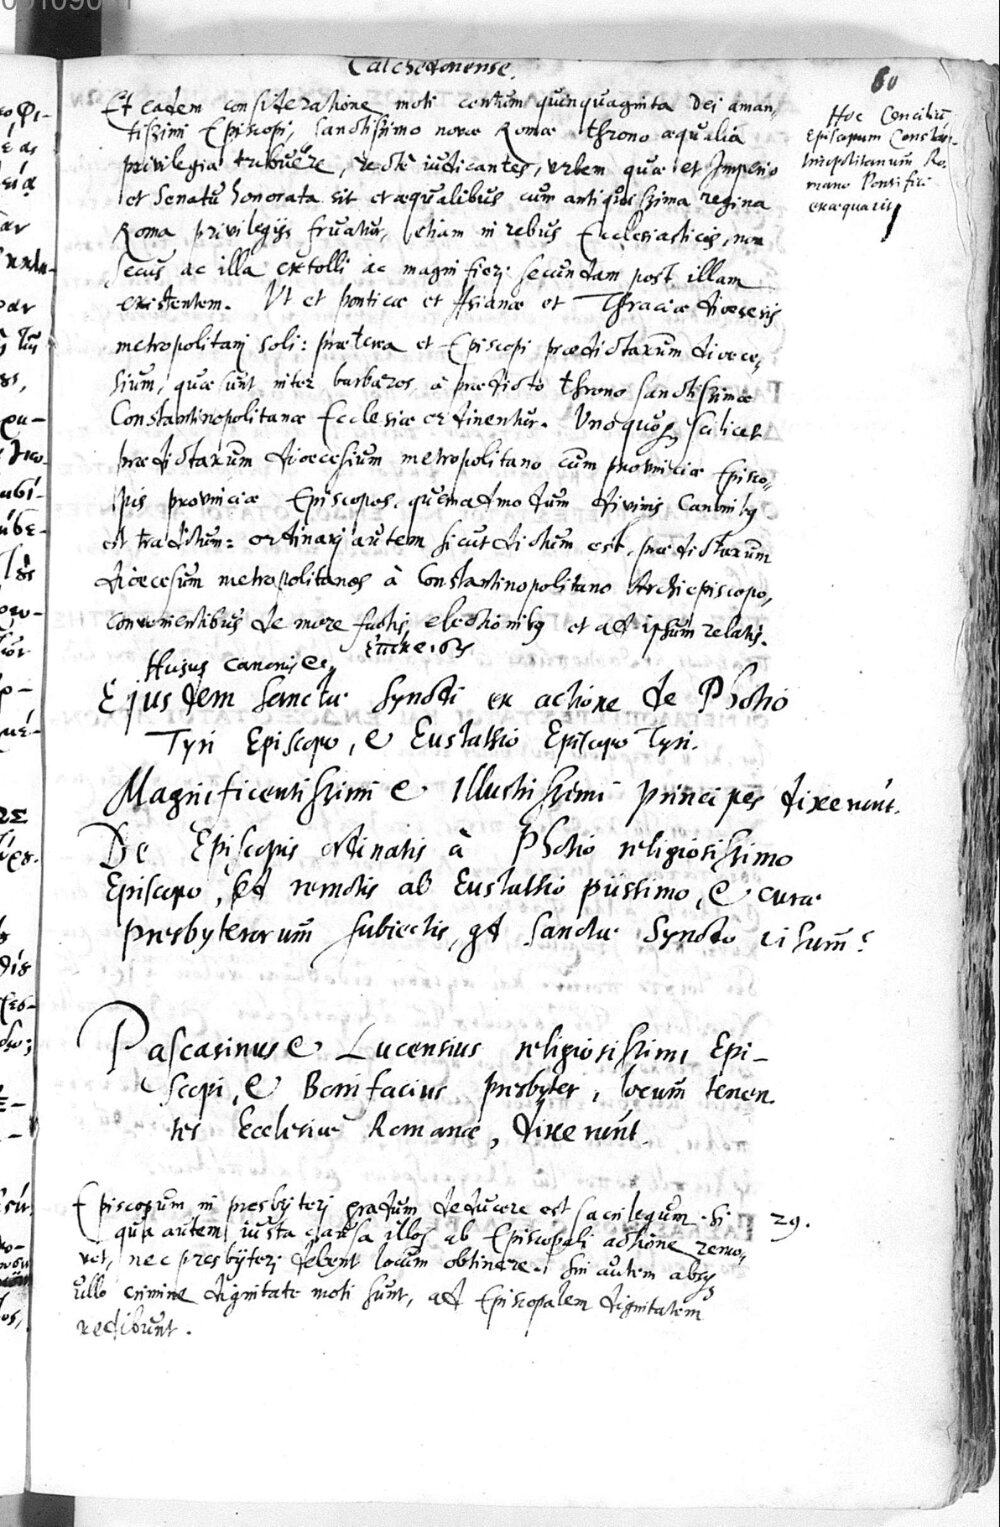 Calchedonense.
80
Et eadem consideratione moti centum quinquaginta Dei aman,
tissimi Episcopi, sanctissimo novæ Romæ throno æqualia
privilegia tribuêre, rectè iudicantes, urbem quæ et Imperio
et Senatu honorata sit et æqualibus cum antiquissima regina
Roma privilegijs fruatur, etiam in rebus Ecclesiasticis, non
secus ac illa extolli ac magnifieri secundam post illam
existentem. Ut et Ponticæ et Asianæ et Thraciæ diœcesis
metropolitani soli: præterea et Episcopi prædictarum diœce,
sium, quæ sunt inter barbaros à prædicto throno sanctissimæ
Constantinopolitanæ Ecclesiæ ordinentur. Unoquoq scilicet
prædictarum diœcesium metropolitano cum provinciæ Episco,
pis provinciæ Episcopos, quemadmodum divinis Canonibq
est traditum: ordinari autem sicut dictum est, prædictarum
diœcesium metropolitanos à Constantinopolitano Archiepiscopo,
convenientibus de more factis electionibq et ad ipsum relatis.
Hoc Conciliū
Episcopum Constan-
tinopolitanum Ro-
mano Pontifici
exæquavit
Huius canonis
Ejusdem sanctæ synodi ex actione de Photio
Tyri Episcopo, & Eustathio Episcopo Tyri.
Magnificentissimi & illustrissimi principes dixerunt.
De Episcopis ordinatis à Photio religiosissimo
Episcopo, sed remotis ab Eustathio piissimo, & curæ
presbyterorum subiectis, qd sanctæ Synodo visum?
Pascasinus & Lucensius religiosissimi Epi-
scopi, & Bonifacius presbyter, locum tenen
tes Ecclesiæ Romanæ, dixerunt.
Episcopum in presbyteri gradum deducere est sacrilegum. Si
29.
qua autem iusta causa illos ab Episcopali actione remo,
vet, nec presbyteri debent locum obtinere. Sin autem absq
ullo crimine dignitate moti sunt, ad Episcopalem dignitatem
redibunt.